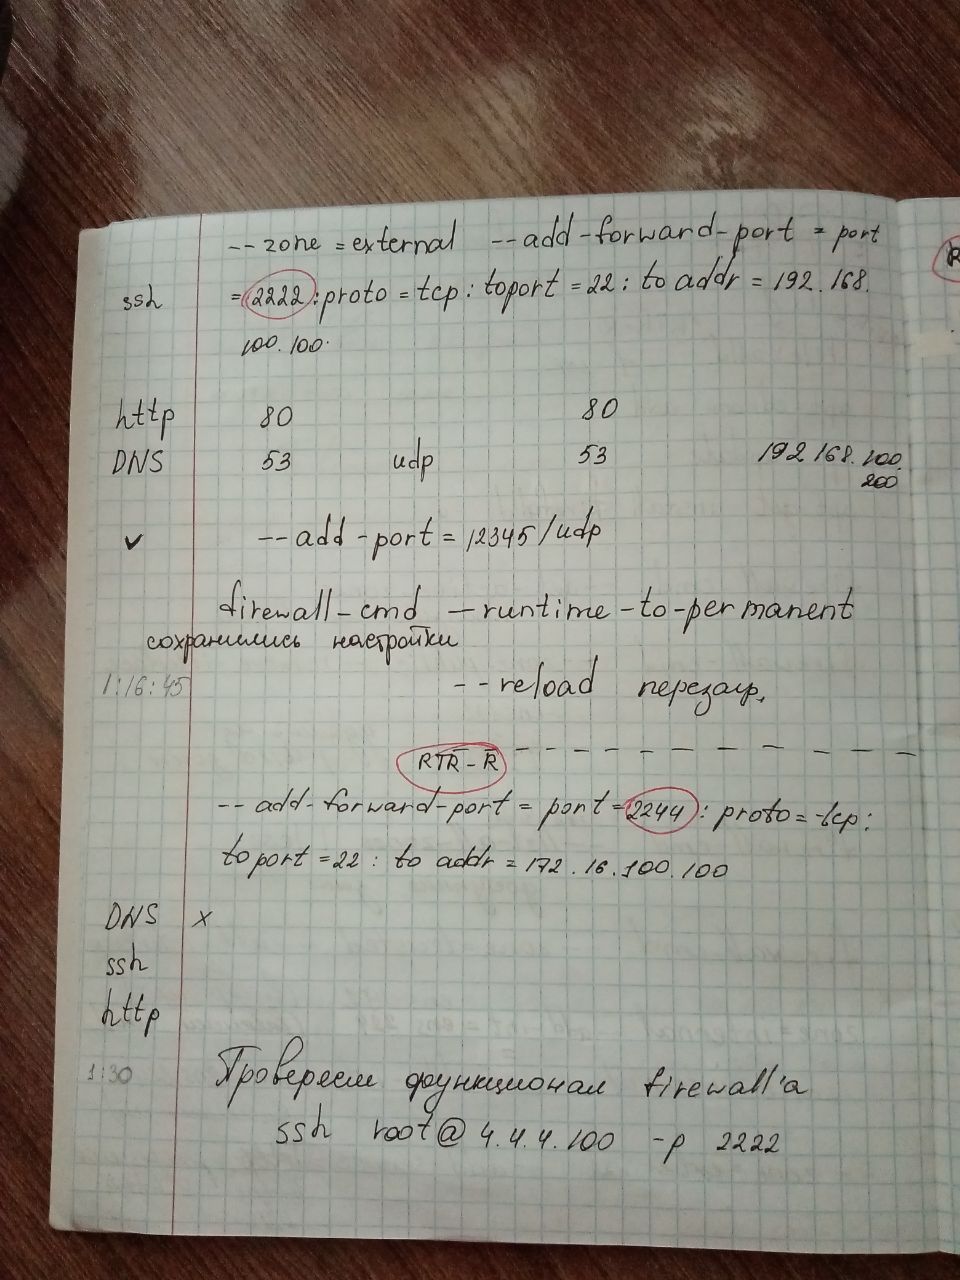 -- zone = external -- add-forward-port = port
ssh = 2222 : proto = tcp : toport = 22 : to addr = 192.168.
100.100.
http 80 80
DNS 53 udp 53 192 168.100.
200
✓ -- add - port = 12345/udp
firewall-cmd —runtime-to-permanent
сохранились настройки
1:16:45 --reload перезагр.
RTR-R
-- add-forward-port = port = 2244 : proto = tcp :
toport = 22 : to addr = 172.16.100.100
DNS x
ssh
http
1:30 Проверяем функционал firewall'а
ssh root@ 4.4.4.100 -p 2222
R